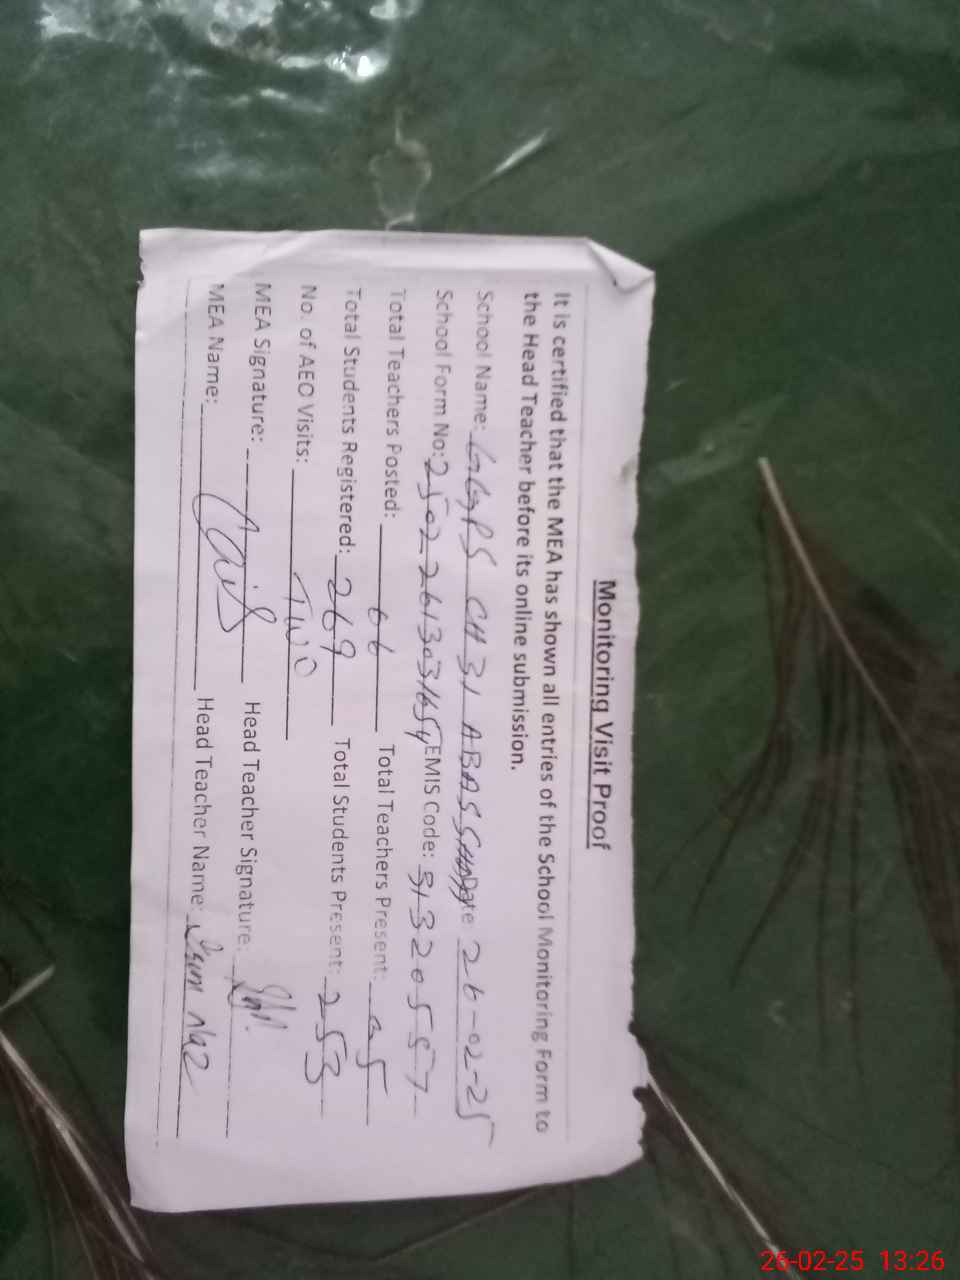 Monitoring Visit Proof
It is certified that the MEA has shown all entries of the School Monitoring Form to
the Head Teacher before its online submission.
School Name: GGPS CH 31 ABASS Date: 26-02-25
School Form No: 25022613031654 EMIS Code: 31320557
Total Teachers Posted: 06 Total Teachers Present: 05
Total Students Registered: 269 Total Students Present: 253
No. of AEO Visits: TWO
MEA Signature: Head Teacher Signature:
MEA Name: Head Teacher Name: Naz
26-02-25 13:26